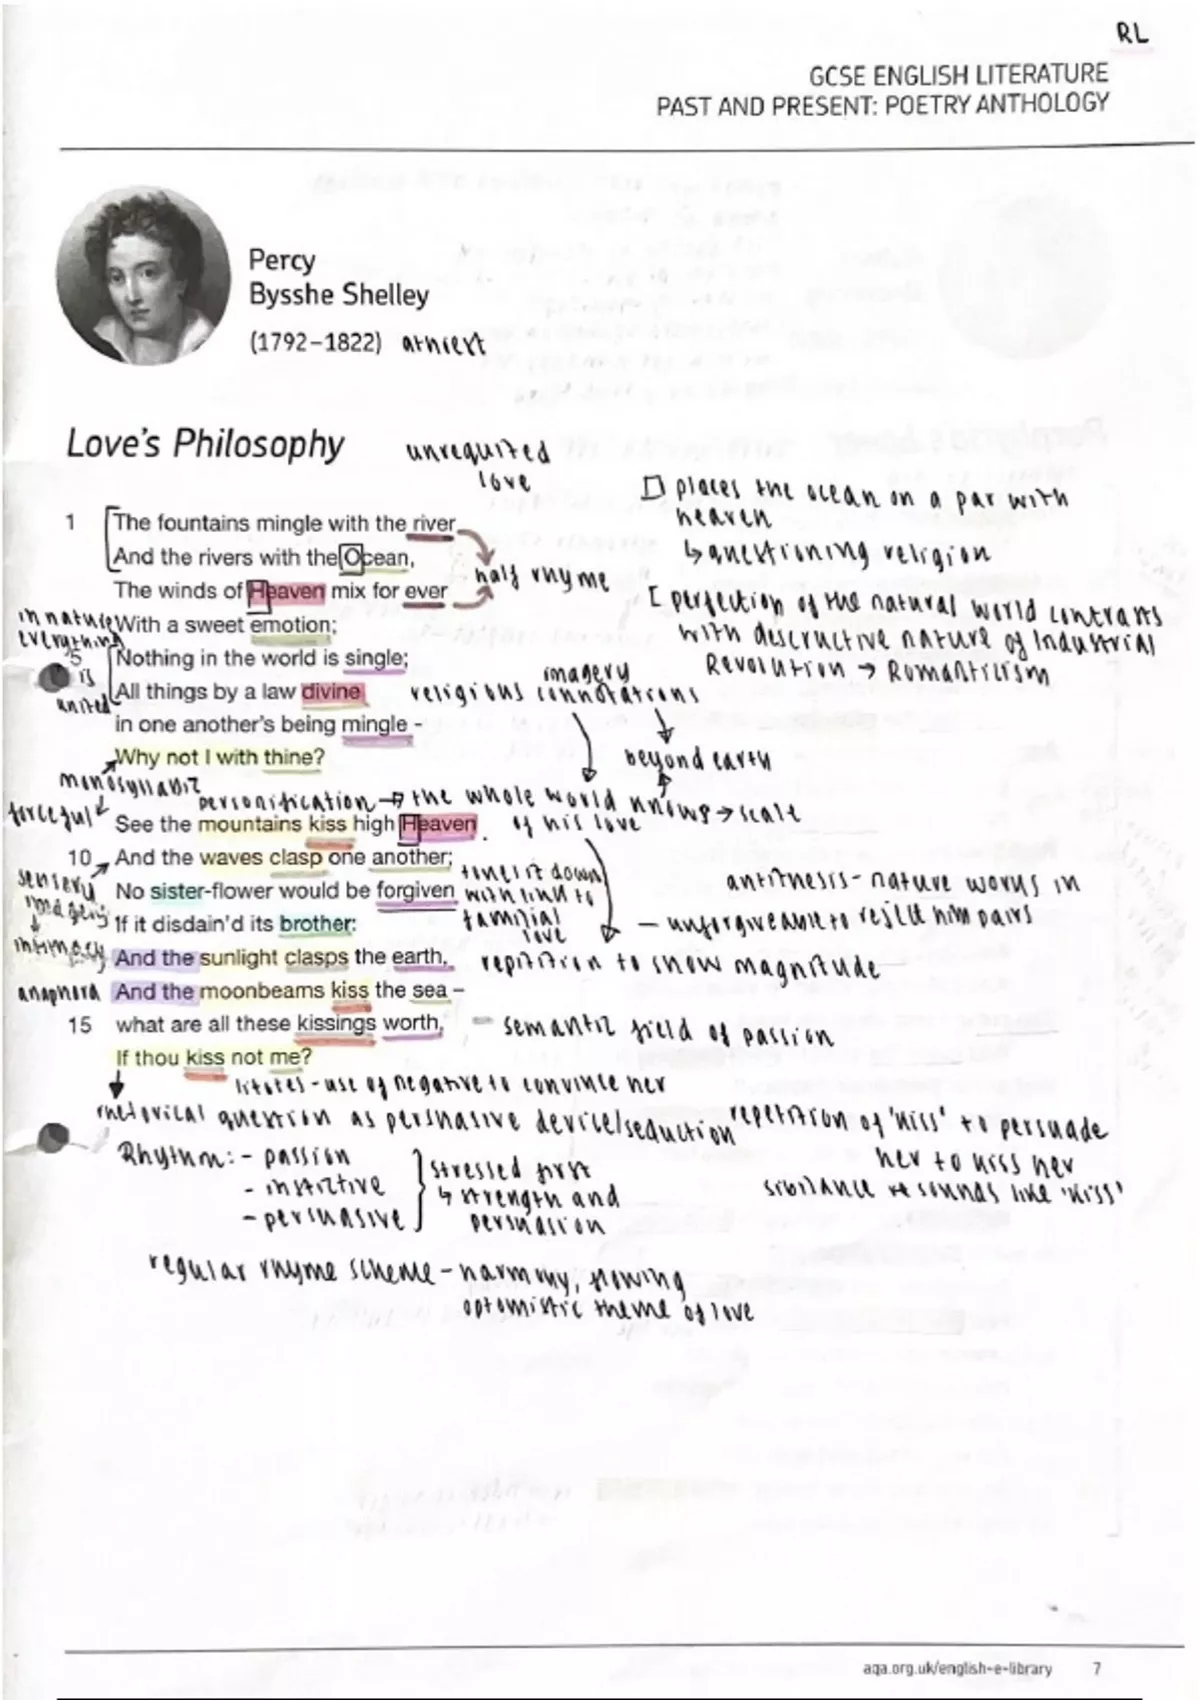 RL
GCSE ENGLISH LITERATURE
PAST AND PRESENT: POETRY ANTHOLOGY
Percy
Bysshe Shelley
(1792–1822) athiest
Love's Philosophy
unrequited
love
1 The fountains mingle with the river
And the rivers with the Ocean,
The winds of Heaven mix for ever
With a sweet emotion;
5 Nothing in the world is single;
All things by a law divine
in one another's being mingle -
Why not I with thine?
half rhyme
places the ocean on a par with
heaven
↳ questioning religion
[ perfection of the natural world contrasts
with descructive nature of Industrial
Revolution → Romanticism
in nature
everything
is
united
religious connotations
imagery
beyond earth
monosyllabic
forceful
personification → the whole world knows → scale
of his love
See the mountains kiss high Heaven
10 And the waves clasp one another;
No sister-flower would be forgiven
If it disdain'd its brother:
And the sunlight clasps the earth,
And the moonbeams kiss the sea –
15 what are all these kissings worth,
If thou kiss not me?
sensery
imagery
↓
intimacy
anaphora
tones it down
with link to
familial
love
antithesis - nature works in
pairs
— unforgiveable to reject him
repitition to show magnitude
– semantic field of passion
litotes - use of negative to convince her
rhetorical question as persuasive device/seduction
repetition of 'kiss' to persuade
her to kiss her
sibilance sounds like 'kiss'
Rhythm: - passion
- instictive
- persuasive
stressed first
↳ strength and
persuasion
regular rhyme scheme - harmony, flowing
optomistic theme of love
aqa.org.uk/english-e-library 7